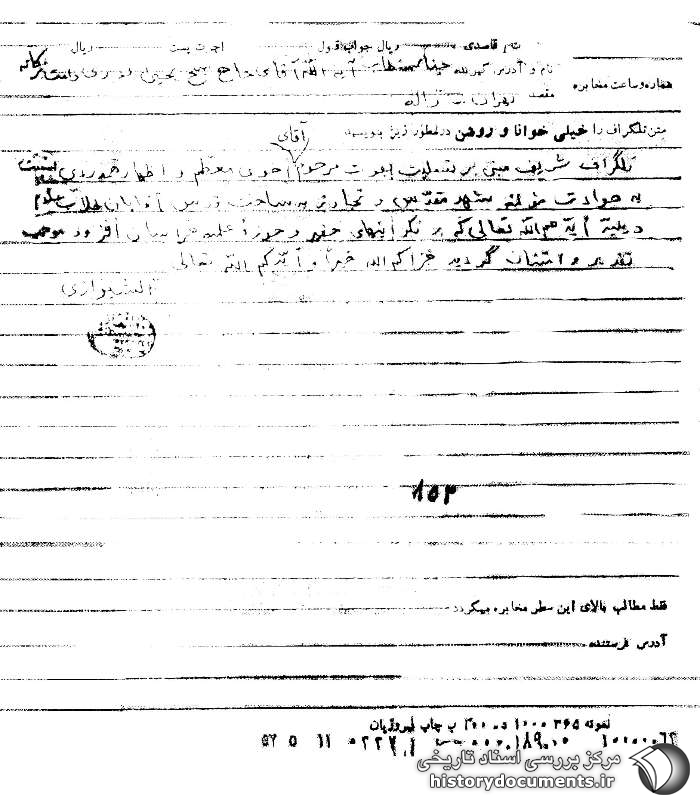 قاصدی ریال جواب قبول اجرت پست ریال
نام و آدرس گیرنده آیة الله آقای حاج شیخ یحیی نوری دامت برکاته
شماره و ساعت مخابره مقصد تهران ژاله
متن تلگراف را خیلی خوانا و روشن در سطور زیر بنویسید
آقای
تلگراف شریف مبنی بر تسلیت بفوت مرحوم اخوی معظم و اظهار همدردی نسبت
به حوادث مؤلمه مشهد مقدس و تجاوز به ساحت آقایان طلاب علوم
دینیه أیدهم الله تعالی که بر نگرانیهای حقیر و حوزۀ علمیه خراسان افزود موجب
تقدیر و امتنان گردید جزاکم الله خیراً و أیدکم الله تعالی
الشیرازی
۱۵۳
فقط مطالب بالای این سطر مخابره میگردد
آدرس فرستنده
نمونه ۳۶۵ ۱۰۰۰ ۳۰۰ ب چاپ
۵۷ ۵ ۱۱
مرکز بررسی اسناد تاریخی
historydocuments.ir